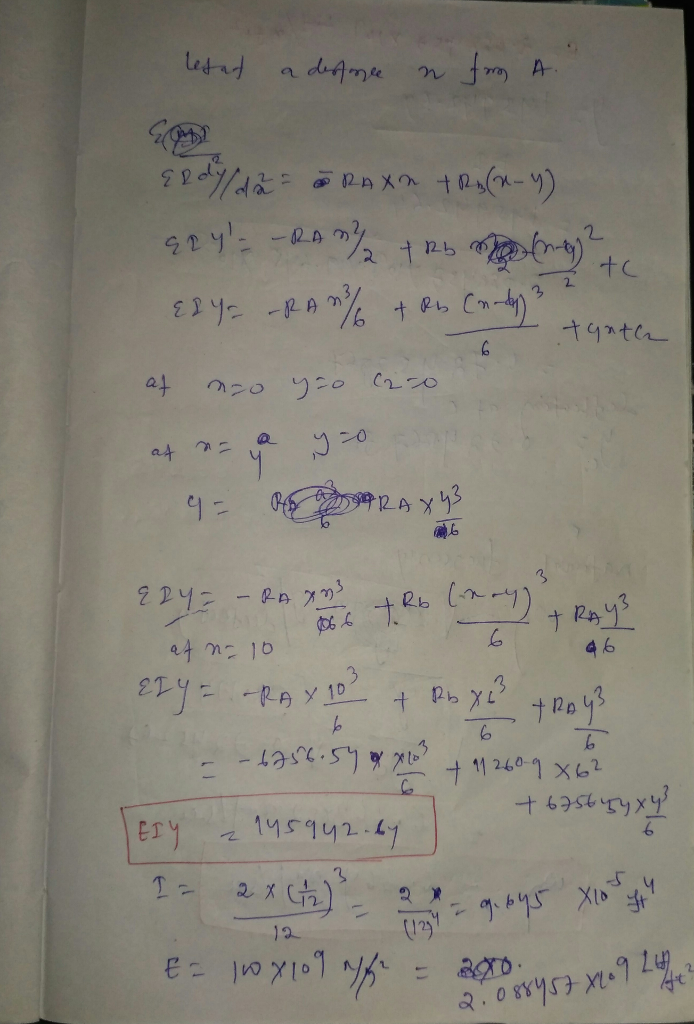 let at a distance x from A.
EI d²y/dx² = - RA × x + Rb(x-4)
EIy' = -RA x²/2 + Rb (x-4)²/2 + C
EIy = -RA x³/6 + Rb (x-4)³/6 + C1x+C2
at x=0 y=0 C2=0
at x= 4 , y=0
C1 = RA × 4³/6
EIy = - RA × x³/6 + Rb (x-4)³/6 + RA 4³/6
at x= 10
EIy = -RA × 10³/6 + Rb × 6³/6 + RA 4³/6
= - 6756.54 × 10³/6 + 11260.9 × 6² + 6756.54 × 4³/6
EIY = 145942.64
I = 2 × (1/12)³/12 = 2/(12)⁴ = 9.645 × 10⁻⁵ ft⁴
E = 100 × 10⁹ N/m² = 2.088457 × 10⁹ Lbf/ft²